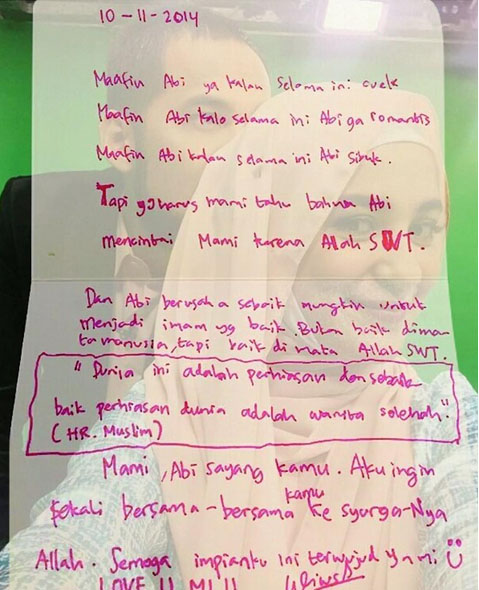 10-11-2014
Maafin Abi ya kalau selama ini cuek
Maafin Abi kalo selama ini Abi ga romantis
Maafin Abi kalau selama ini Abi sibuk.
Tapi yg harus mami tahu bahwa Abi
mencintai Mami karena Allah SWT.
Dan Abi berusaha sebaik mungkin untuk
menjadi imam yg baik. Bukan baik dima-
ta manusia, tapi baik di mata Allah SWT.
"Dunia ini adalah perhiasan dan sebaik
baik perhiasan dunia adalah wanita solehah".
(HR. Muslim)
Mami, Abi sayang kamu. Aku ingin
sekali bersama-bersama kamu ke syurga-Nya
Allah. Semoga impianku ini terwujud ya mi
LOVE U MI !!